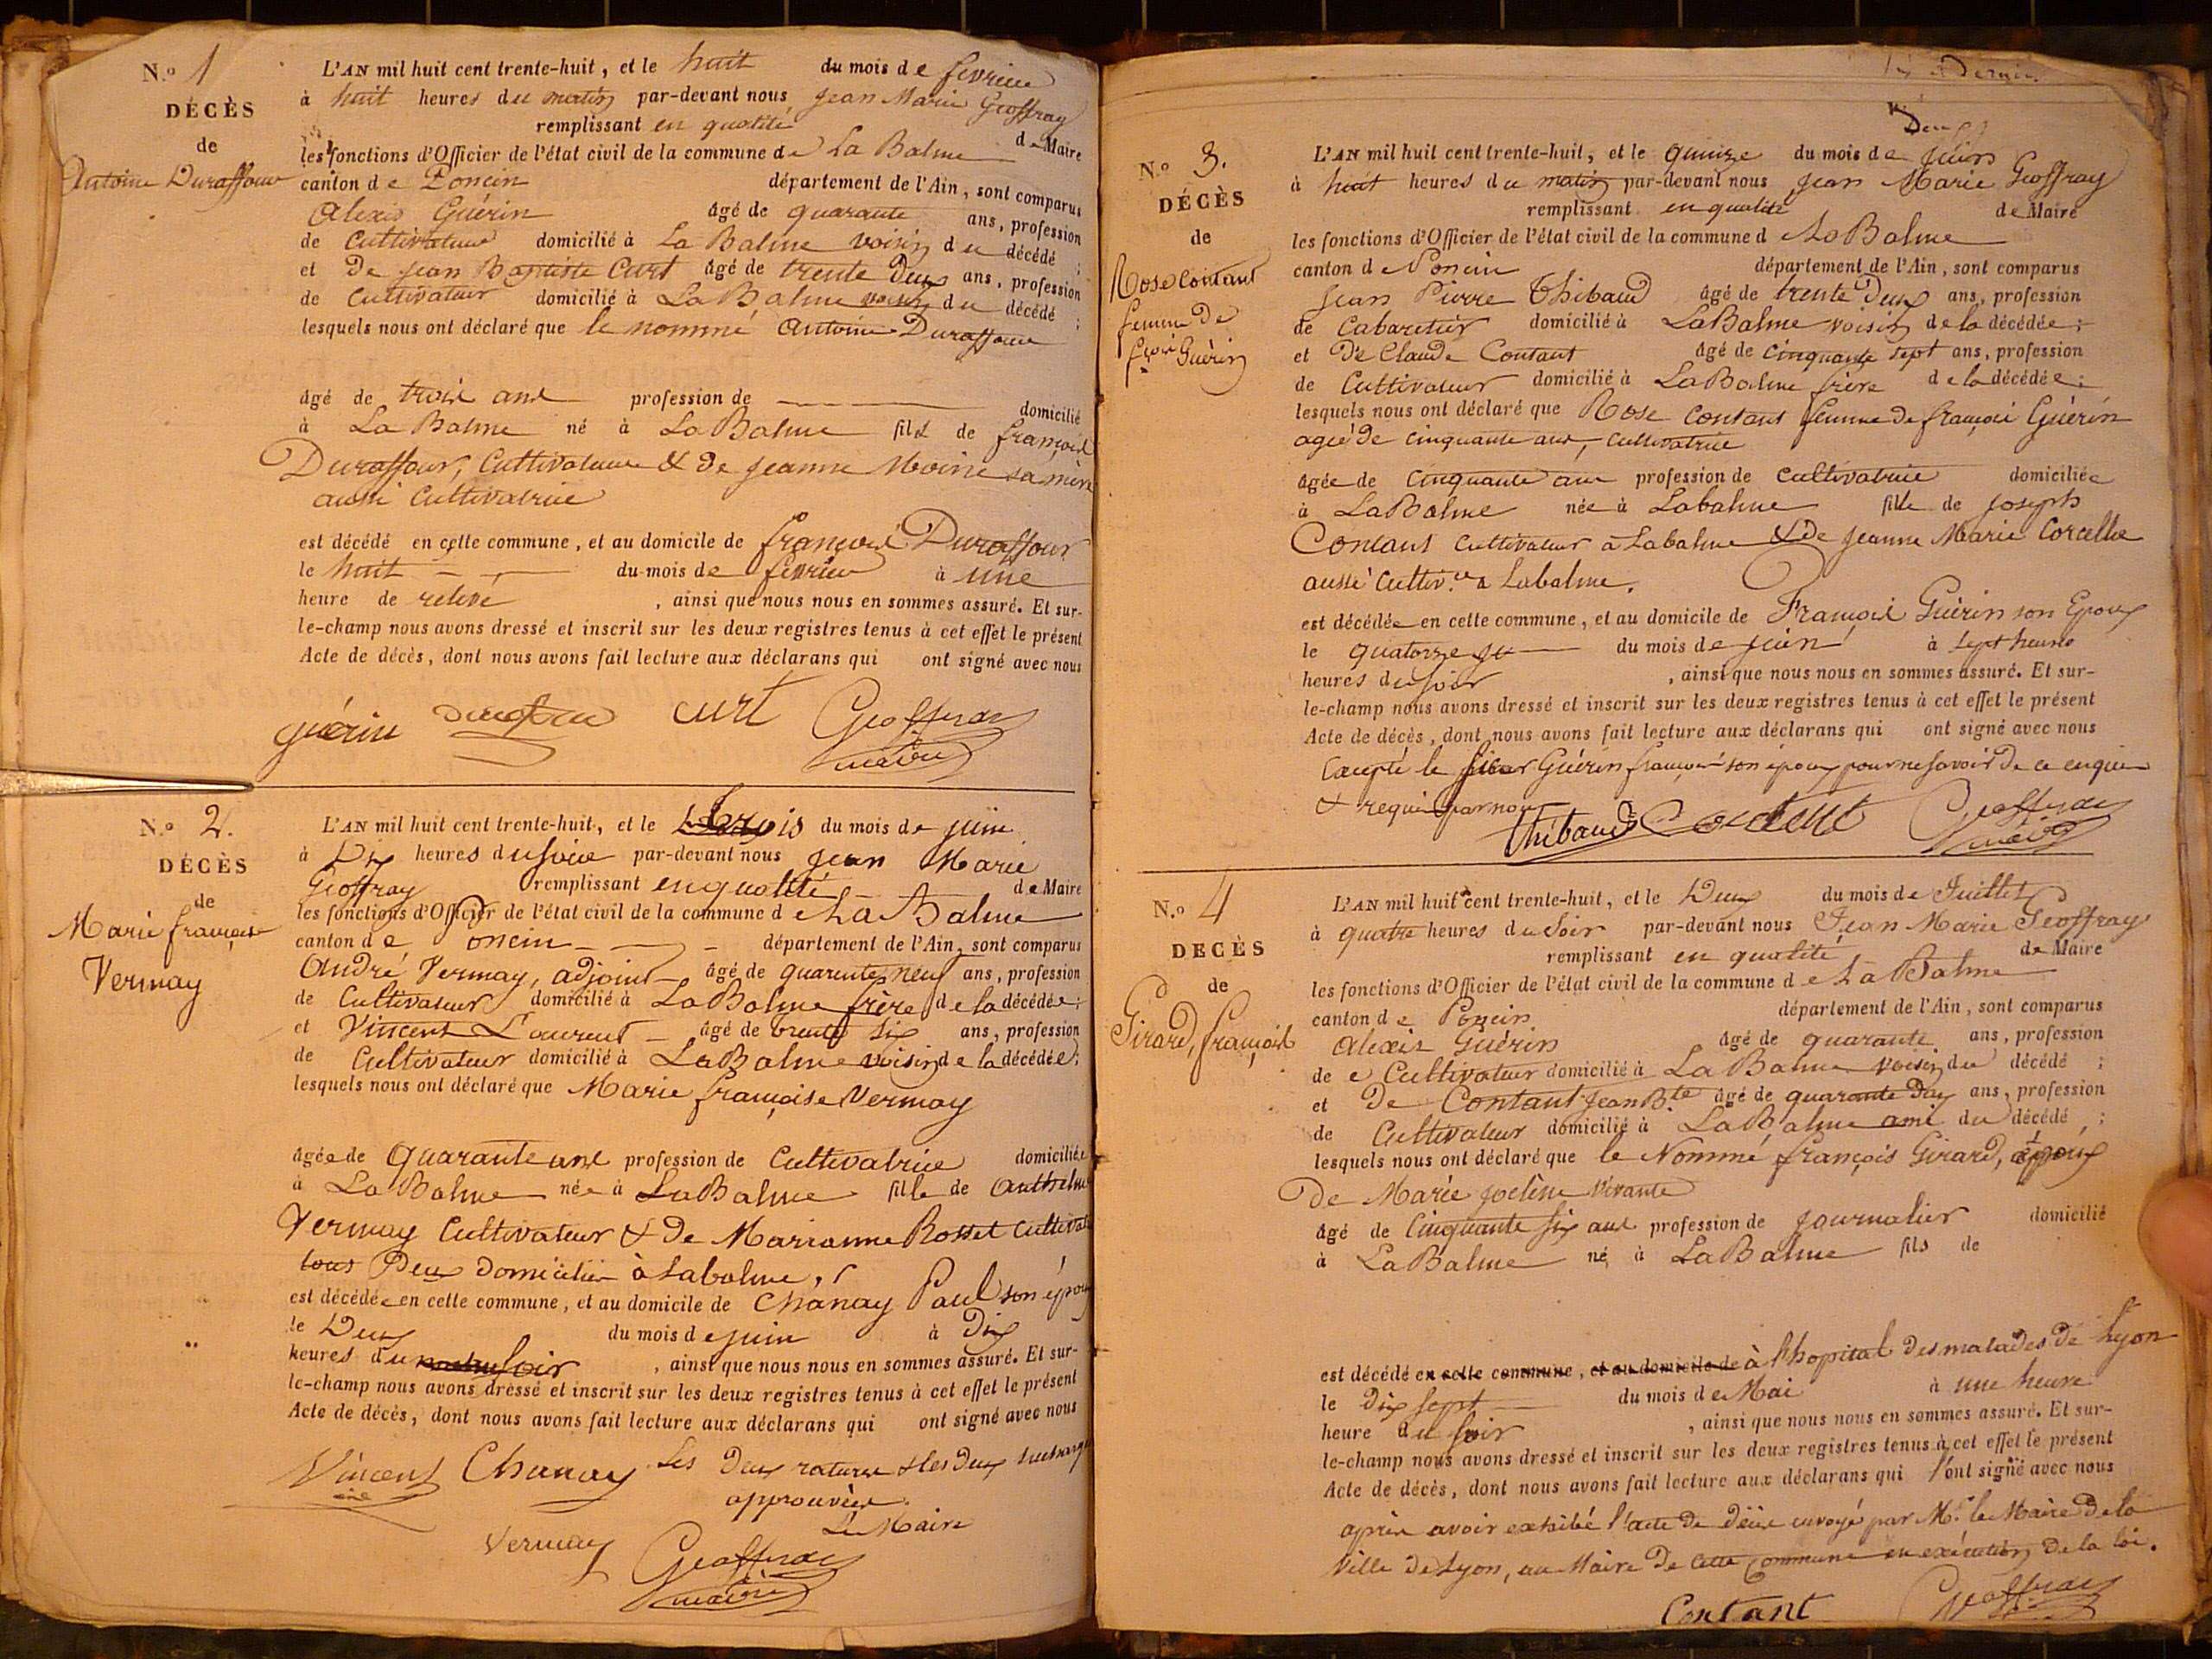 N.o 1
DÉCÈS
de
Antoine Duraffour
L'AN mil huit cent trente-huit, et le huit du mois de fevrier
à huit heures du matin par-devant nous Jean Marie Geoffray
remplissant en qualité de Maire
les fonctions d'Officier de l'état civil de la commune de La Balme
canton de Poncin département de l'Ain, sont comparus
Alexis Guérin âgé de quarante ans, profession
de Cultivateur domicilié à La Balme voisin du décédé ;
et De Jean Baptiste Curt âgé de trente Deux ans, profession
de Cultivateur domicilié à La Balme voisin du décédé ;
lesquels nous ont déclaré que le nommé Antoine Duraffour
âgé de trois ans profession de domicilié
à La Balme né à La Balme fils de françois
Duraffour, Cultivateur & de Jeanne Moine sa mère
aussi Cultivatrice
est décédé en cette commune, et au domicile de françois Duraffour
le huit du mois de fevrier à une
heure de relevé , ainsi que nous nous en sommes assuré. Et sur-
le-champ nous avons dressé et inscrit sur les deux registres tenus à cet effet le présent
Acte de décès, dont nous avons fait lecture aux déclarans qui ont signé avec nous
guérin curt Geoffray
maire
N.o 2.
DÉCÈS
de
Marie françoise
Vermay
L'AN mil huit cent trente-huit, et le trois du mois de juin
à Dix heures du soir par-devant nous Jean Marie
Geoffray remplissant en qualité de Maire
les fonctions d'Officier de l'état civil de la commune de La Balme
canton de Poncin département de l'Ain, sont comparus
André Vermay, adjoint âgé de quarente neuf ans, profession
de Cultivateur domicilié à La Balme frère de la décédée ;
et Vincent Laurent âgé de trente six ans, profession
de Cultivateur domicilié à La Balme voisin de la décédée ;
lesquels nous ont déclaré que Marie françoise Vermay
âgée de Quarante ans profession de Cultivatrice domiciliée
à La Balme née à La Balme fille de Anthelme
Vermay Cultivateur & de Marianne Rosset Cultivat
tous Deux domicilié à Labalme,
est décédée en cette commune, et au domicile de Chanay Paul son époux
le Deux du mois de juin à Dix
heures du soir , ainsi que nous nous en sommes assuré. Et sur-
le-champ nous avons dressé et inscrit sur les deux registres tenus à cet effet le présent
Acte de décès, dont nous avons fait lecture aux déclarans qui ont signé avec nous
Vincent Chanay Les Deux ratures & les Deux
approuvées.
Le Maire
Vermay Geoffray
maire
N.o 3.
DÉCÈS
de
Rose Contant
femme De
fçois Guérin
L'AN mil huit cent trente-huit, et le quinze du mois de juin
à huit heures du matin par-devant nous Jean Marie Geoffray
remplissant en qualité de Maire
les fonctions d'Officier de l'état civil de la commune d La Balme
canton de Poncin département de l'Ain, sont comparus
Jean Pierre Thibaud âgé de trente Deux ans, profession
de Cabaretier domicilié à La Balme voisin de la décédée ;
et De Claude Contant âgé de cinquante sept ans, profession
de Cultivateur domicilié à La Balme frère de la décédée ;
lesquels nous ont déclaré que Rose Contant femme De françois Guérin
agée de cinquante ans, cultivatrice
âgée de cinquante ans profession de cultivatrice domiciliée
à La Balme née à Labalme fille de joseph
Contant cultivateur à Labalme & De Jeanne Marie Corcelle
aussi cultiv.ce à Labalme.
est décédée en cette commune, et au domicile de François Guérin son Epoux
le quatorze du mois de juin à sept heures
heures du soir , ainsi que nous nous en sommes assuré. Et sur-
le-champ nous avons dressé et inscrit sur les deux registres tenus à cet effet le présent
Acte de décès, dont nous avons fait lecture aux déclarans qui ont signé avec nous
Excepté le sieur Guérin françois son époux pour ne savoir De ce enquis
& requis par nous
Thibaud Contant Geoffray
maire
N.o 4
DÉCÈS
de
Girard, françois
L'AN mil huit cent trente-huit, et le Deux du mois de Juillet
à quatre heures du Soir par-devant nous Jean Marie Geoffray
remplissant en qualité de Maire
les fonctions d'Officier de l'état civil de la commune de La Balme
canton de Poncin département de l'Ain, sont comparus
Alexis Guérin âgé de quarante ans, profession
de Cultivateur domicilié à La Balme voisin du décédé ;
et De Contant Jean Bte âgé de quarante Deux ans, profession
de Cultivateur domicilié à La Balme ami du décédé ;
lesquels nous ont déclaré que le Nommé françois Girard, époux
De Marie Vivante
âgé de Cinquante six ans profession de Journalier domicilié
à La Balme né à La Balme fils de
est décédé en cette commune, et au domicile de à l'hopital Des malades De Lyon
le Dix sept du mois de Mai à une heure
heure du soir , ainsi que nous nous en sommes assuré. Et sur-
le-champ nous avons dressé et inscrit sur les deux registres tenus à cet effet le présent
Acte de décès, dont nous avons fait lecture aux déclarans qui l'ont signé avec nous
après avoir exhibé l'acte De décès envoyé par Mr. le Maire De la
Ville De Lyon, au Maire De Cette Commune en exécution De la loi.
Contant Geoffray